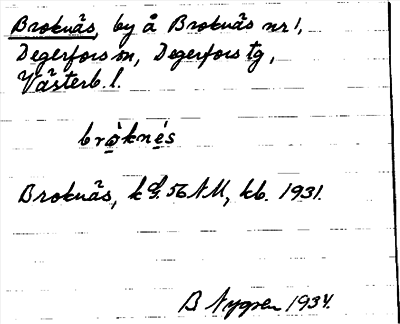 Broknäs, by å Broknäs nr 1,
Degerfors sn, Degerfors tg,
Västerb. l.
bròknẹs
Broknäs, kbl. 56 NM, kb. 1931.
B Nygren 1934.